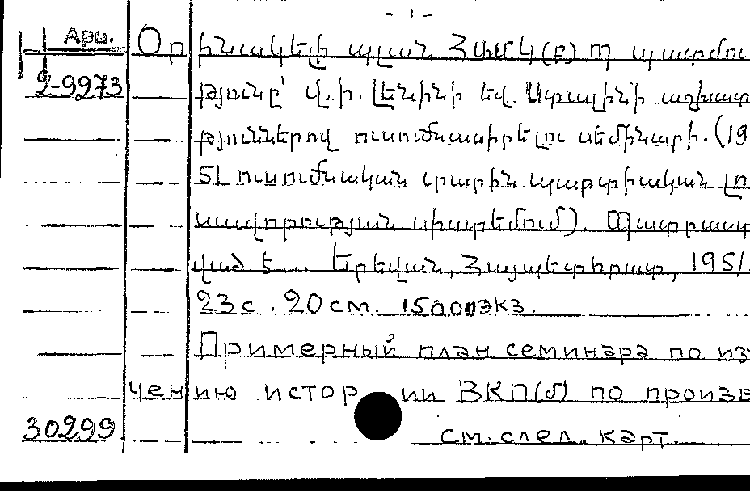 - 1 -
Арм. Օրինակելի պլան ՀամԿ(բ)Կ պատմու
2-9973 թյունը՝ Վ.Ի. Լենինի եվ. Ստալինի աշխատ
թյուններով ուսումնասիրելու սեմինարի. (19
51 ուսումնական տարին պարտիական լու
սավորության սիստեմում). Պատրաստ
ված է... Երեվան, Հայպետհրատ, 1951.
23 с. 20 см. 1500 экз.
Примерный план семинара по из
чению истории ВКП(б) по произв
30299 см. след. карт.